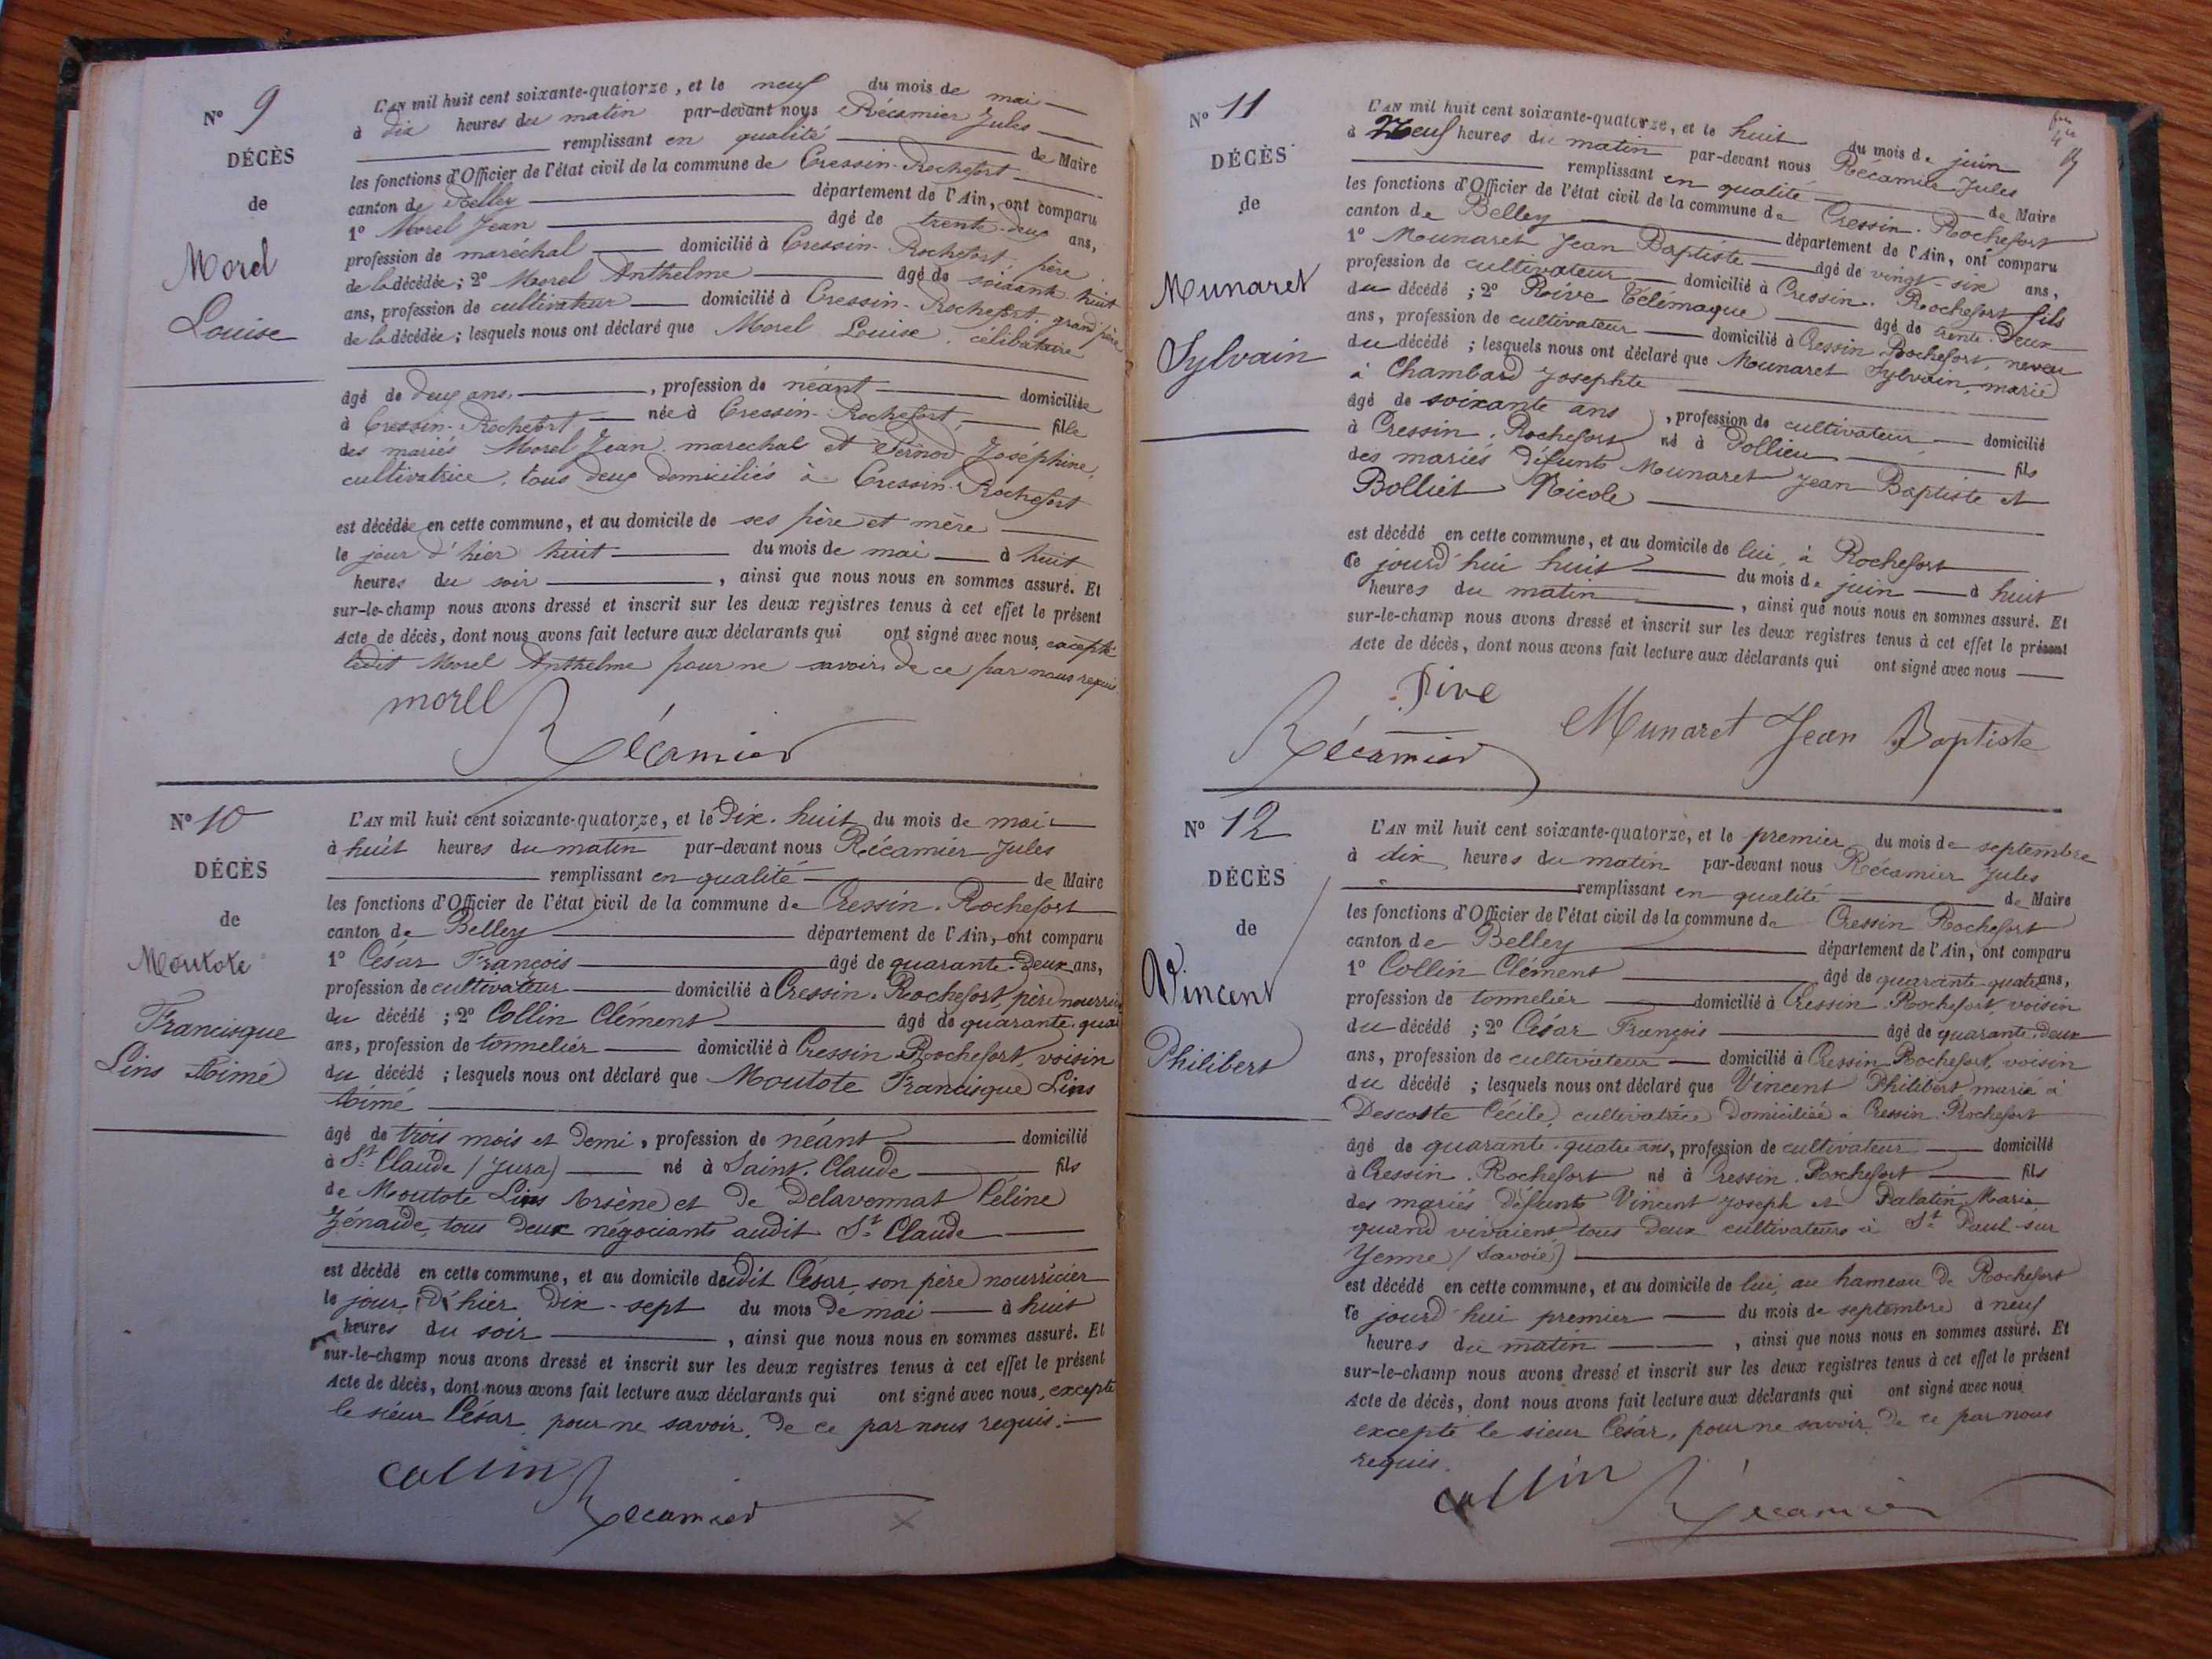 N° 9
DÉCÈS
de
Morel
Louise
L'AN mil huit cent soixante-quatorze, et le neuf du mois de mai
à dix heures du matin par-devant nous Récamier Jules
remplissant en qualité de Maire
les fonctions d'Officier de l'état civil de la commune de Cressin-Rochefort
canton de Belley département de l'Ain, ont comparu
1° Morel Jean âgé de trente-deux ans,
profession de maréchal domicilié à Cressin-Rochefort, père
de la décédée ; 2° Morel Anthelme âgé de soixante-huit
ans, profession de cultivateur domicilié à Cressin-Rochefort, grand père
de la décédée ; lesquels nous ont déclaré que Morel Louise, célibataire
âgé de deux ans, , profession de néant domiciliée
à Cressin-Rochefort née à Cressin-Rochefort, fille
des mariés Morel Jean, marechal et Joséphine,
cultivatrice, tous deux domiciliés à Cressin-Rochefort
est décédée en cette commune, et au domicile de ses père et mère
le jour d'hier huit du mois de mai à huit
heures du soir , ainsi que nous nous en sommes assuré. Et
sur-le-champ nous avons dressé et inscrit sur les deux registres tenus à cet effet le présent
Acte de décès, dont nous avons fait lecture aux déclarants qui ont signé avec nous, excepté
ledit Morel Anthelme pour ne savoir, de ce par nous requis.
morel
Récamier
N° 10
DÉCÈS
de
Moutote
Francisque
Lins Aimé
L'AN mil huit cent soixante-quatorze, et le Dix-huit du mois de mai
à huit heures du matin par-devant nous Récamier Jules
remplissant en qualité de Maire
les fonctions d'Officier de l'état civil de la commune de Cressin-Rochefort
canton de Belley département de l'Ain, ont comparu
1° César François âgé de quarante-Deux ans,
profession de cultivateur domicilié à Cressin-Rochefort, père nourricier
du décédé ; 2° Collin Clément âgé de quarante-quatre
ans, profession de tonnelier domicilié à Cressin-Rochefort, voisin
du décédé ; lesquels nous ont déclaré que Moutote Francisque Lins
Aimé
âgé de trois mois et Demi, profession de néant domicilié
à St Claude (Jura) né à Saint-Claude fils
de Moutote Lins Arsène et de Delavennat Céline
Zénaide, tous Deux négociants audit St Claude
est décédé en cette commune, et au domicile dudit César, son père nourricier
le jour D'hier Dix-sept du mois De mai à huit
heures du soir , ainsi que nous nous en sommes assuré. Et
sur-le-champ nous avons dressé et inscrit sur les deux registres tenus à cet effet le présent
Acte de décès, dont nous avons fait lecture aux déclarants qui ont signé avec nous, excepté
le sieur César, pour ne savoir, de ce par nous requis.
collin
Récamier
N° 11
DÉCÈS
de
Munaret
Sylvain
L'AN mil huit cent soixante-quatorze, et le huit du mois de juin
à Neuf heures du matin par-devant nous Récamier Jules
remplissant en qualité de Maire
les fonctions d'Officier de l'état civil de la commune de Cressin-Rochefort
canton de Belley département de l'Ain, ont comparu
1° Munaret Jean Baptiste âgé de vingt-six ans,
profession de cultivateur domicilié à Cressin-Rochefort fils
du décédé ; 2° Rive Télémaque âgé de trente-Deux
ans, profession de cultivateur domicilié à Cressin-Rochefort, neveu
du décédé ; lesquels nous ont déclaré que Munaret Sylvain, marié
à Chambard Josephte
âgé de soixante ans , profession de cultivateur domicilié
à Cressin-Rochefort né à Pollieu fils
des mariés défunts Munaret Jean Baptiste et
Bolliet Nicole
est décédé en cette commune, et au domicile de lui, à Rochefort
Ce jourd'hui huit du mois de juin à huit
heures du matin , ainsi que nous nous en sommes assuré. Et
sur-le-champ nous avons dressé et inscrit sur les deux registres tenus à cet effet le présent
Acte de décès, dont nous avons fait lecture aux déclarants qui ont signé avec nous
Rive
Récamier Munaret Jean Baptiste
N° 12
DÉCÈS
de
Vincent
Philibert
L'AN mil huit cent soixante-quatorze, et le premier du mois de septembre
à dix heures du matin par-devant nous Récamier Jules
remplissant en qualité de Maire
les fonctions d'Officier de l'état civil de la commune de Cressin Rochefort
canton de Belley département de l'Ain, ont comparu
1° Collin Clément âgé de quarante-quatre ans,
profession de tonnelier domicilié à Cressin-Rochefort, voisin
du décédé ; 2° César François âgé de quarante-Deux
ans, profession de cultivateur domicilié à Cressin-Rochefort, voisin
du décédé ; lesquels nous ont déclaré que Vincent Philibert, marié à
Descoste Cécile, cultivatrice Domiciliée à Cressin-Rochefort
âgé de quarante-quatre ans, profession de cultivateur domicilié
à Cressin-Rochefort né à Cressin-Rochefort fils
des mariés défunts Vincent Joseph et Palatin Marie
quand vivaient tous Deux cultivateurs à St Paul-sur
Yenne (Savoie)
est décédé en cette commune, et au domicile de lui, au hameau de Rochefort
Ce jourd'hui premier du mois de septembre à neuf
heures du matin , ainsi que nous nous en sommes assuré. Et
sur-le-champ nous avons dressé et inscrit sur les deux registres tenus à cet effet le présent
Acte de décès, dont nous avons fait lecture aux déclarants qui ont signé avec nous
excepté le sieur César, pour ne savoir De ce par nous
requis.
collin Récamier